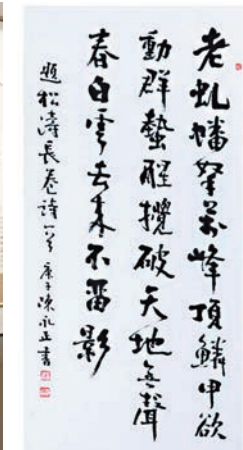 老虬蟠拏萬峰頂鱗甲欲
動群蟄醒攪破天地無聲
春白雲去來不留影
題松濤長卷詩一首 庚子陳永正書